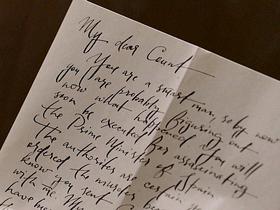 My dear Count
You are a smart man, so by now
you are probably figuring out
now what happened. You will
soon be executed for assassinating
the Prime Minister of Spain.
The authorities are certain
ordered the murder
know you sent
with me. My
have